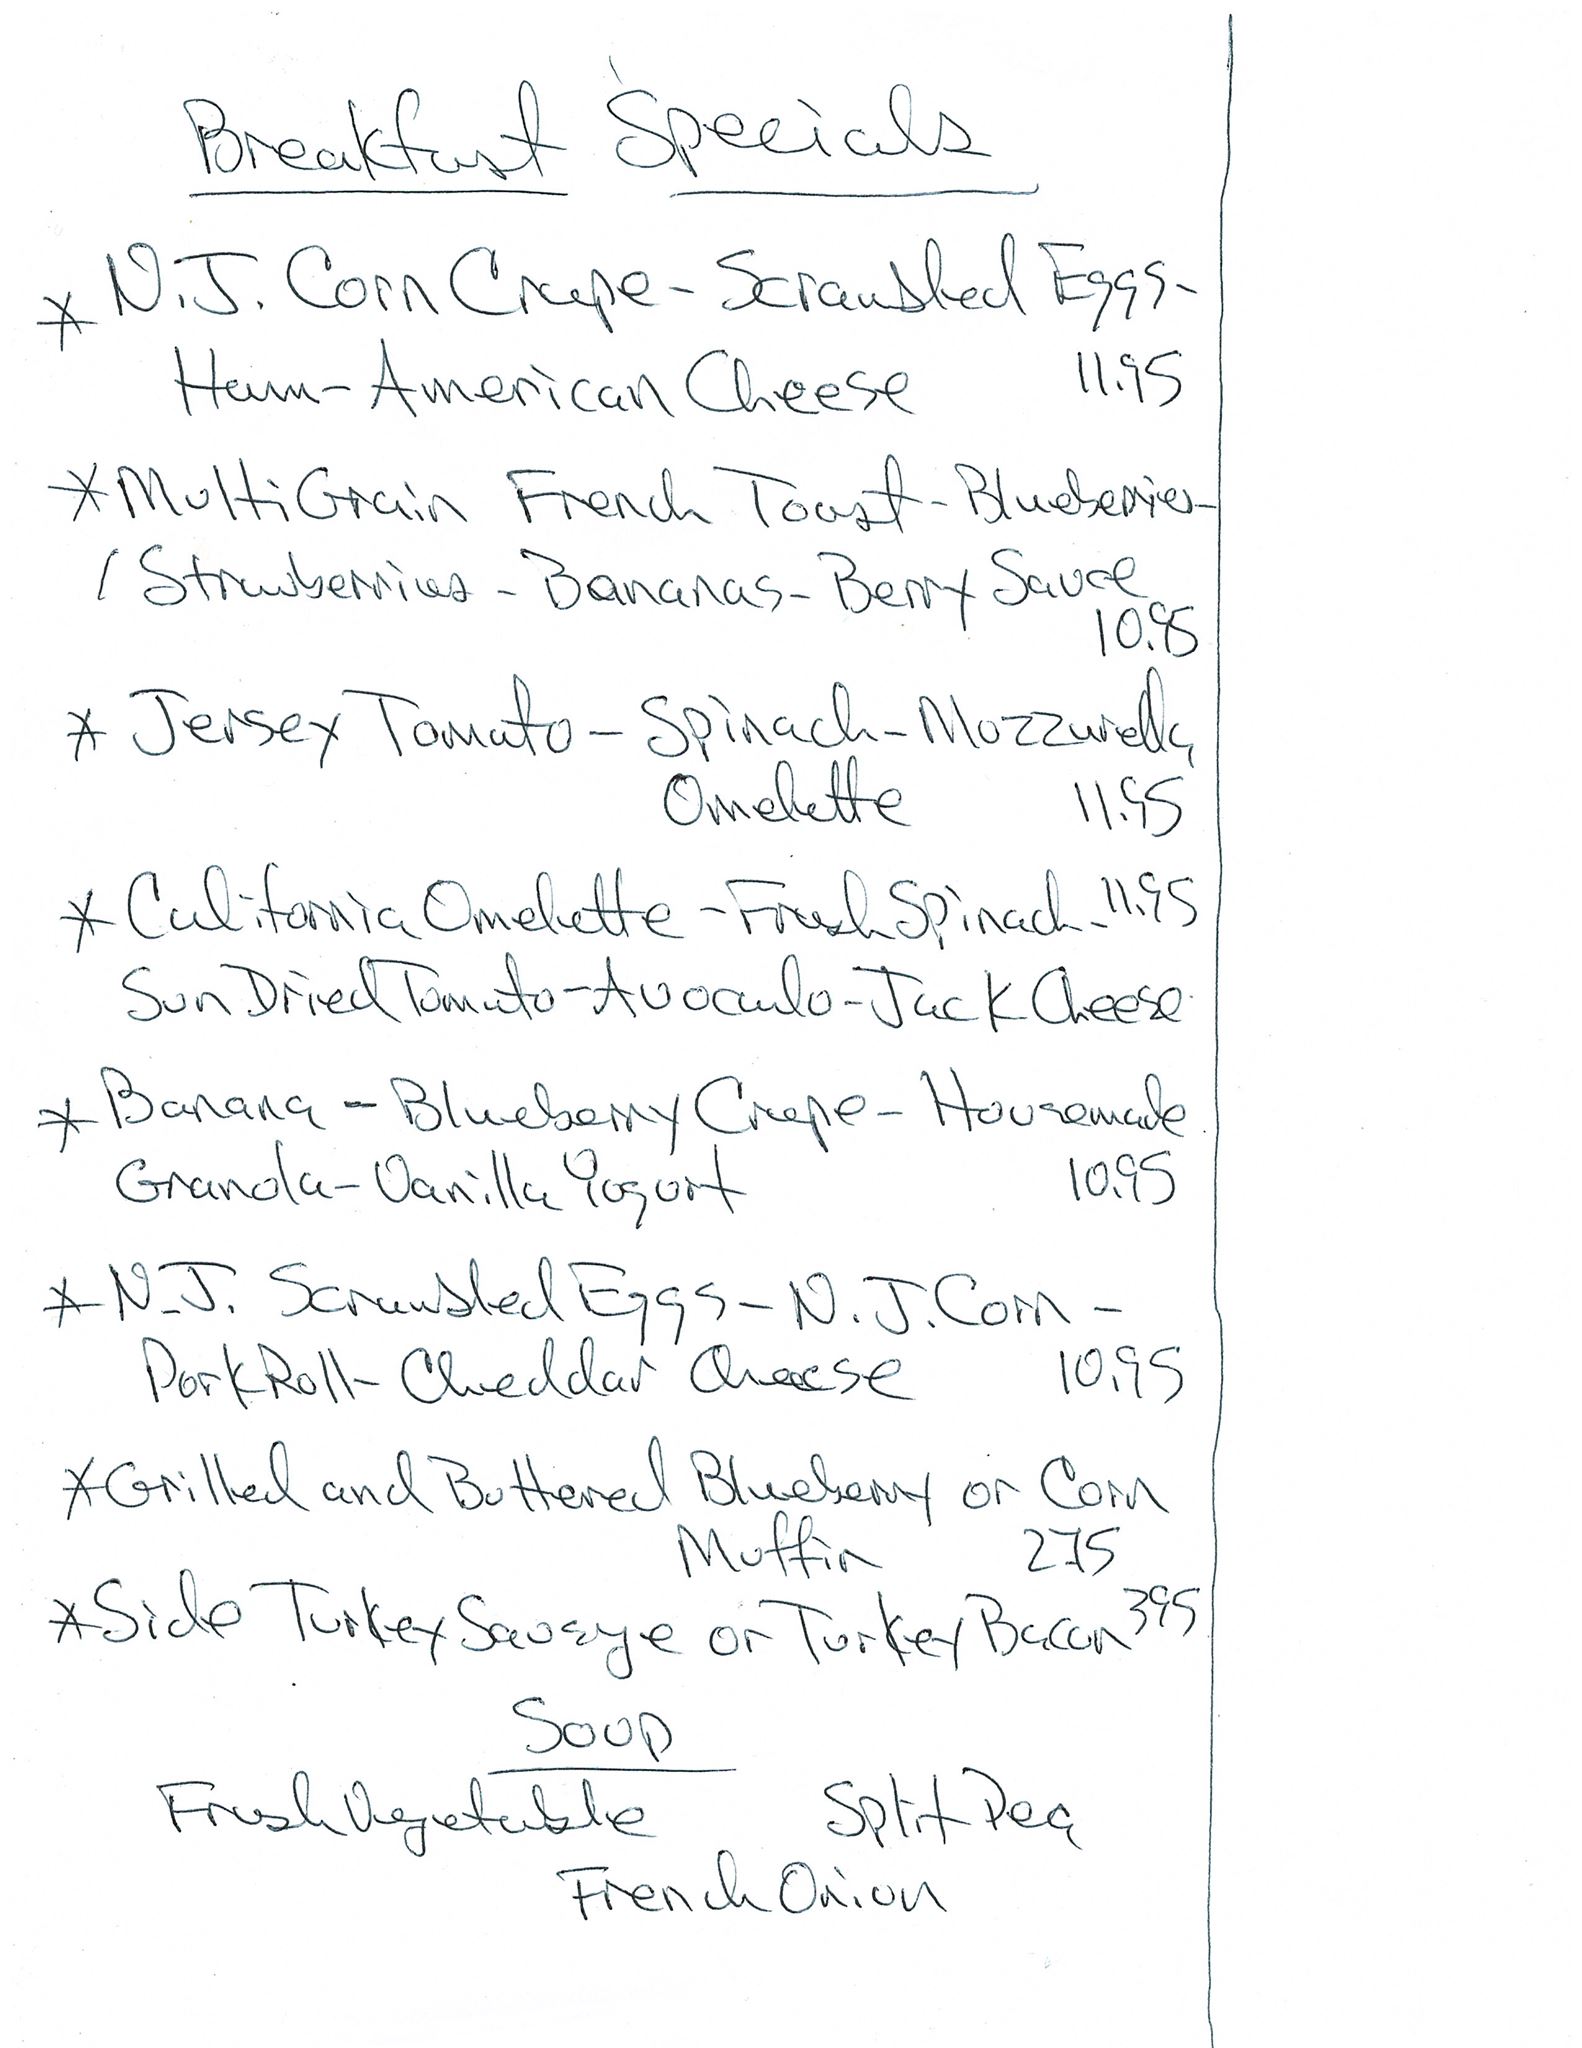 Breakfast Specials
* N.J. Corn Crepe - Scrambled Eggs -
Ham - American Cheese 11.95
* MultiGrain French Toast - Blueberries -
/ Strawberries - Bananas - Berry Sauce
10.95
* Jersey Tomato - Spinach - Mozzarella
Omelette 11.95
* California Omelette - Fresh Spinach - 11.95
Sun Dried Tomato - Avocado - Jack Cheese
* Banana - Blueberry Crepe - Housemade
Granola - Vanilla Yogurt 10.95
* N.J. Scrambled Eggs - N.J. Corn -
Pork Roll - Cheddar Cheese 10.95
* Grilled and Buttered Blueberry or Corn
Muffin 2.75
* Side Turkey Sausage or Turkey Bacon 3.95
Soup
Fresh Vegetable Split Pea
French Onion